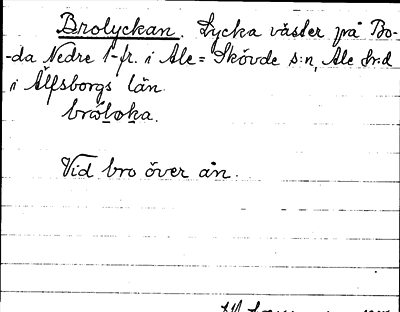 Brolyckan. Lycka väster på Bo-
-da Nedre 1-fr. i Ale=Skövde s:n, Ale hrd
i Älfsborgs län.
bro᷄lo̱ka.
Vid bro över ån.